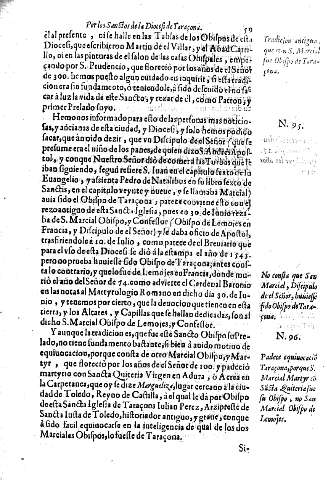 Por los Sanctos de la Diocesi de Taraçona.
el al presente, ni se halle en las Tablas de los Obispos de esta
Diocesi, que escribieron Martin de el Villar, y el Abad Carri-
llo, ni en las pinturas de el salon de las casas Obispales, empe-
çando por S. Prudencio, que floreciò por los años de el Señor
de 300. hemos puesto algun cuidado en inquirir, si esta tradicion
era sin fundamento, ò teniendole, à sido descuido el no sa-
car à luz la vida de este Sancto, y rezar de èl, como Patron, y
primer Prelado suyo.
Hemonos informado para esto de las personas mas noticio-
sas, y ancianas de esta ciudad, y Diocesi, y solo hemos podido
sacar, que an oido dezir, que un Discipulo de el Señor (que se
presume era el niño de los panes, de quien dixo S. Andres Apos-
tol, y con que Nuestro Señor diò de comer à las Turbas que le
iban siguiendo, segun refiere S. Iuan en el capitulo sexto de su
Euangelio, y assienta Pedro de Natalibus en su libro sexto de
Sanctis, en el capitulo veynte y nueve, y se llamaba Marcial)
auia sido el Obispo de Taraçona; parece convence esto con el
rezo antiguo de esta Sancta Iglesia, pues en 30. de Iunio reza-
ba de S. Marcial Obispo, y Confessor (Obispo de Lemojes en
Francia, y Discipulo de el Señor) y le daba oficio de Apostol,
trasfiriendolo à 10. de Iulio, como parece de el Breuiario que
para el vso de esta Diocesi se diò à la estampa el año de 1543.
pero no prueba huuiesse sido Obispo de Taraçona; antes cons-
ta lo contrario, y que lo fue de Lemojes en Francia, donde mu-
riò el año del Señor de 74. como advierte el Cardenal Baronio
en las notas al Martyrologio Romano en dicho dia 30. de Iu-
nio, y tenemos por cierto, que la devocion que tienen en esta
tierra, y los Altares, y Capillas que se hallan dedicadas, son al
dicho S. Marcial Obispo de Lemojes, y Confessor.
Y aunque la tradicion es, que fue este Sancto Obispo su Pre-
lado, no tiene fundamento bastante, si bien à auido motivo de
equivocacion, porque consta de otro Marcial Obispo, y Mar-
tyr, que floreciò por los años de el Señor de 100. y padeciò
martyrio con Sancta Quiteria Virgen en Adura, ò Aeria en
la Carpetania, que oy se dize Margueliza, lugar cercano à la ciu-
dad de Toledo, Reyno de Castilla, à el qual le dà por Obispo
de esta Sancta Iglesia de Taraçona Iulian Perez, Arzipreste de
Sancta Iusta de Toledo, historiador antiguo, y grave, conque
à sido facil equivocarse en la inteligencia de qual de los dos
Marciales Obispos, lo fuesse de Taraçona.
Si-
Tradicion antigua,
que
N. 95.
No consta que San
Marcial, Discipulo
de el Señor, huuiesse
sido Obispo de Tara-
çona.
N. 96.
Padece equivocaciõ
Taraçona, porque S.
Marcial Martyr cõ
Sãcta Quiteria fue
su Obispo, y no San
Marcial Obispo de
Lemojes.